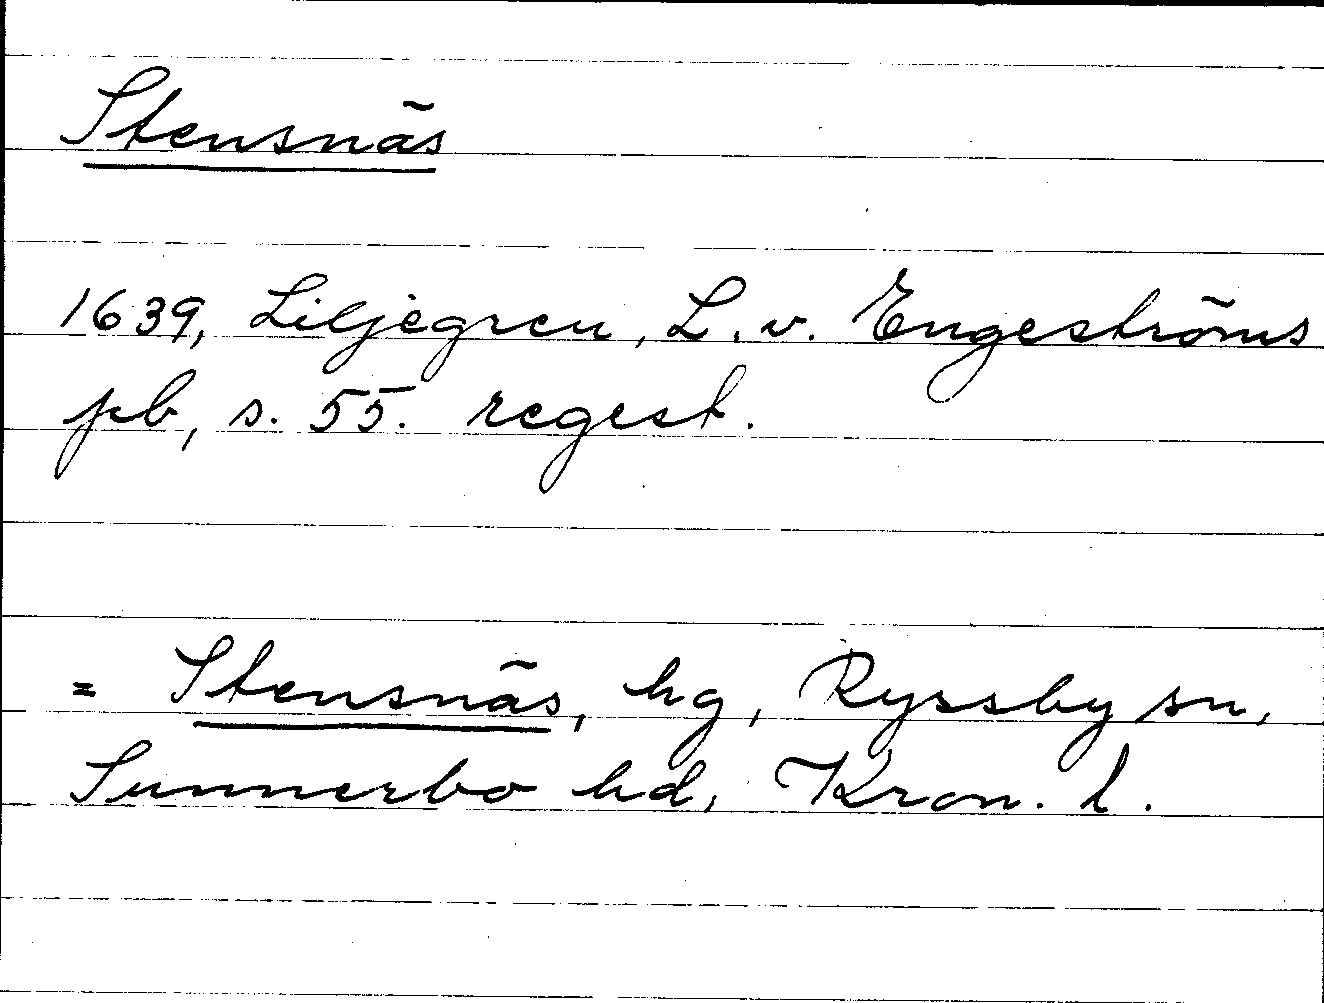 Stensnäs
1639, Liljegren, L. v. Engeströms
pb, s. 55. regest.
= Stensnäs, hg, Ryssby sn,
Sunnerbo hd, Kron. l.